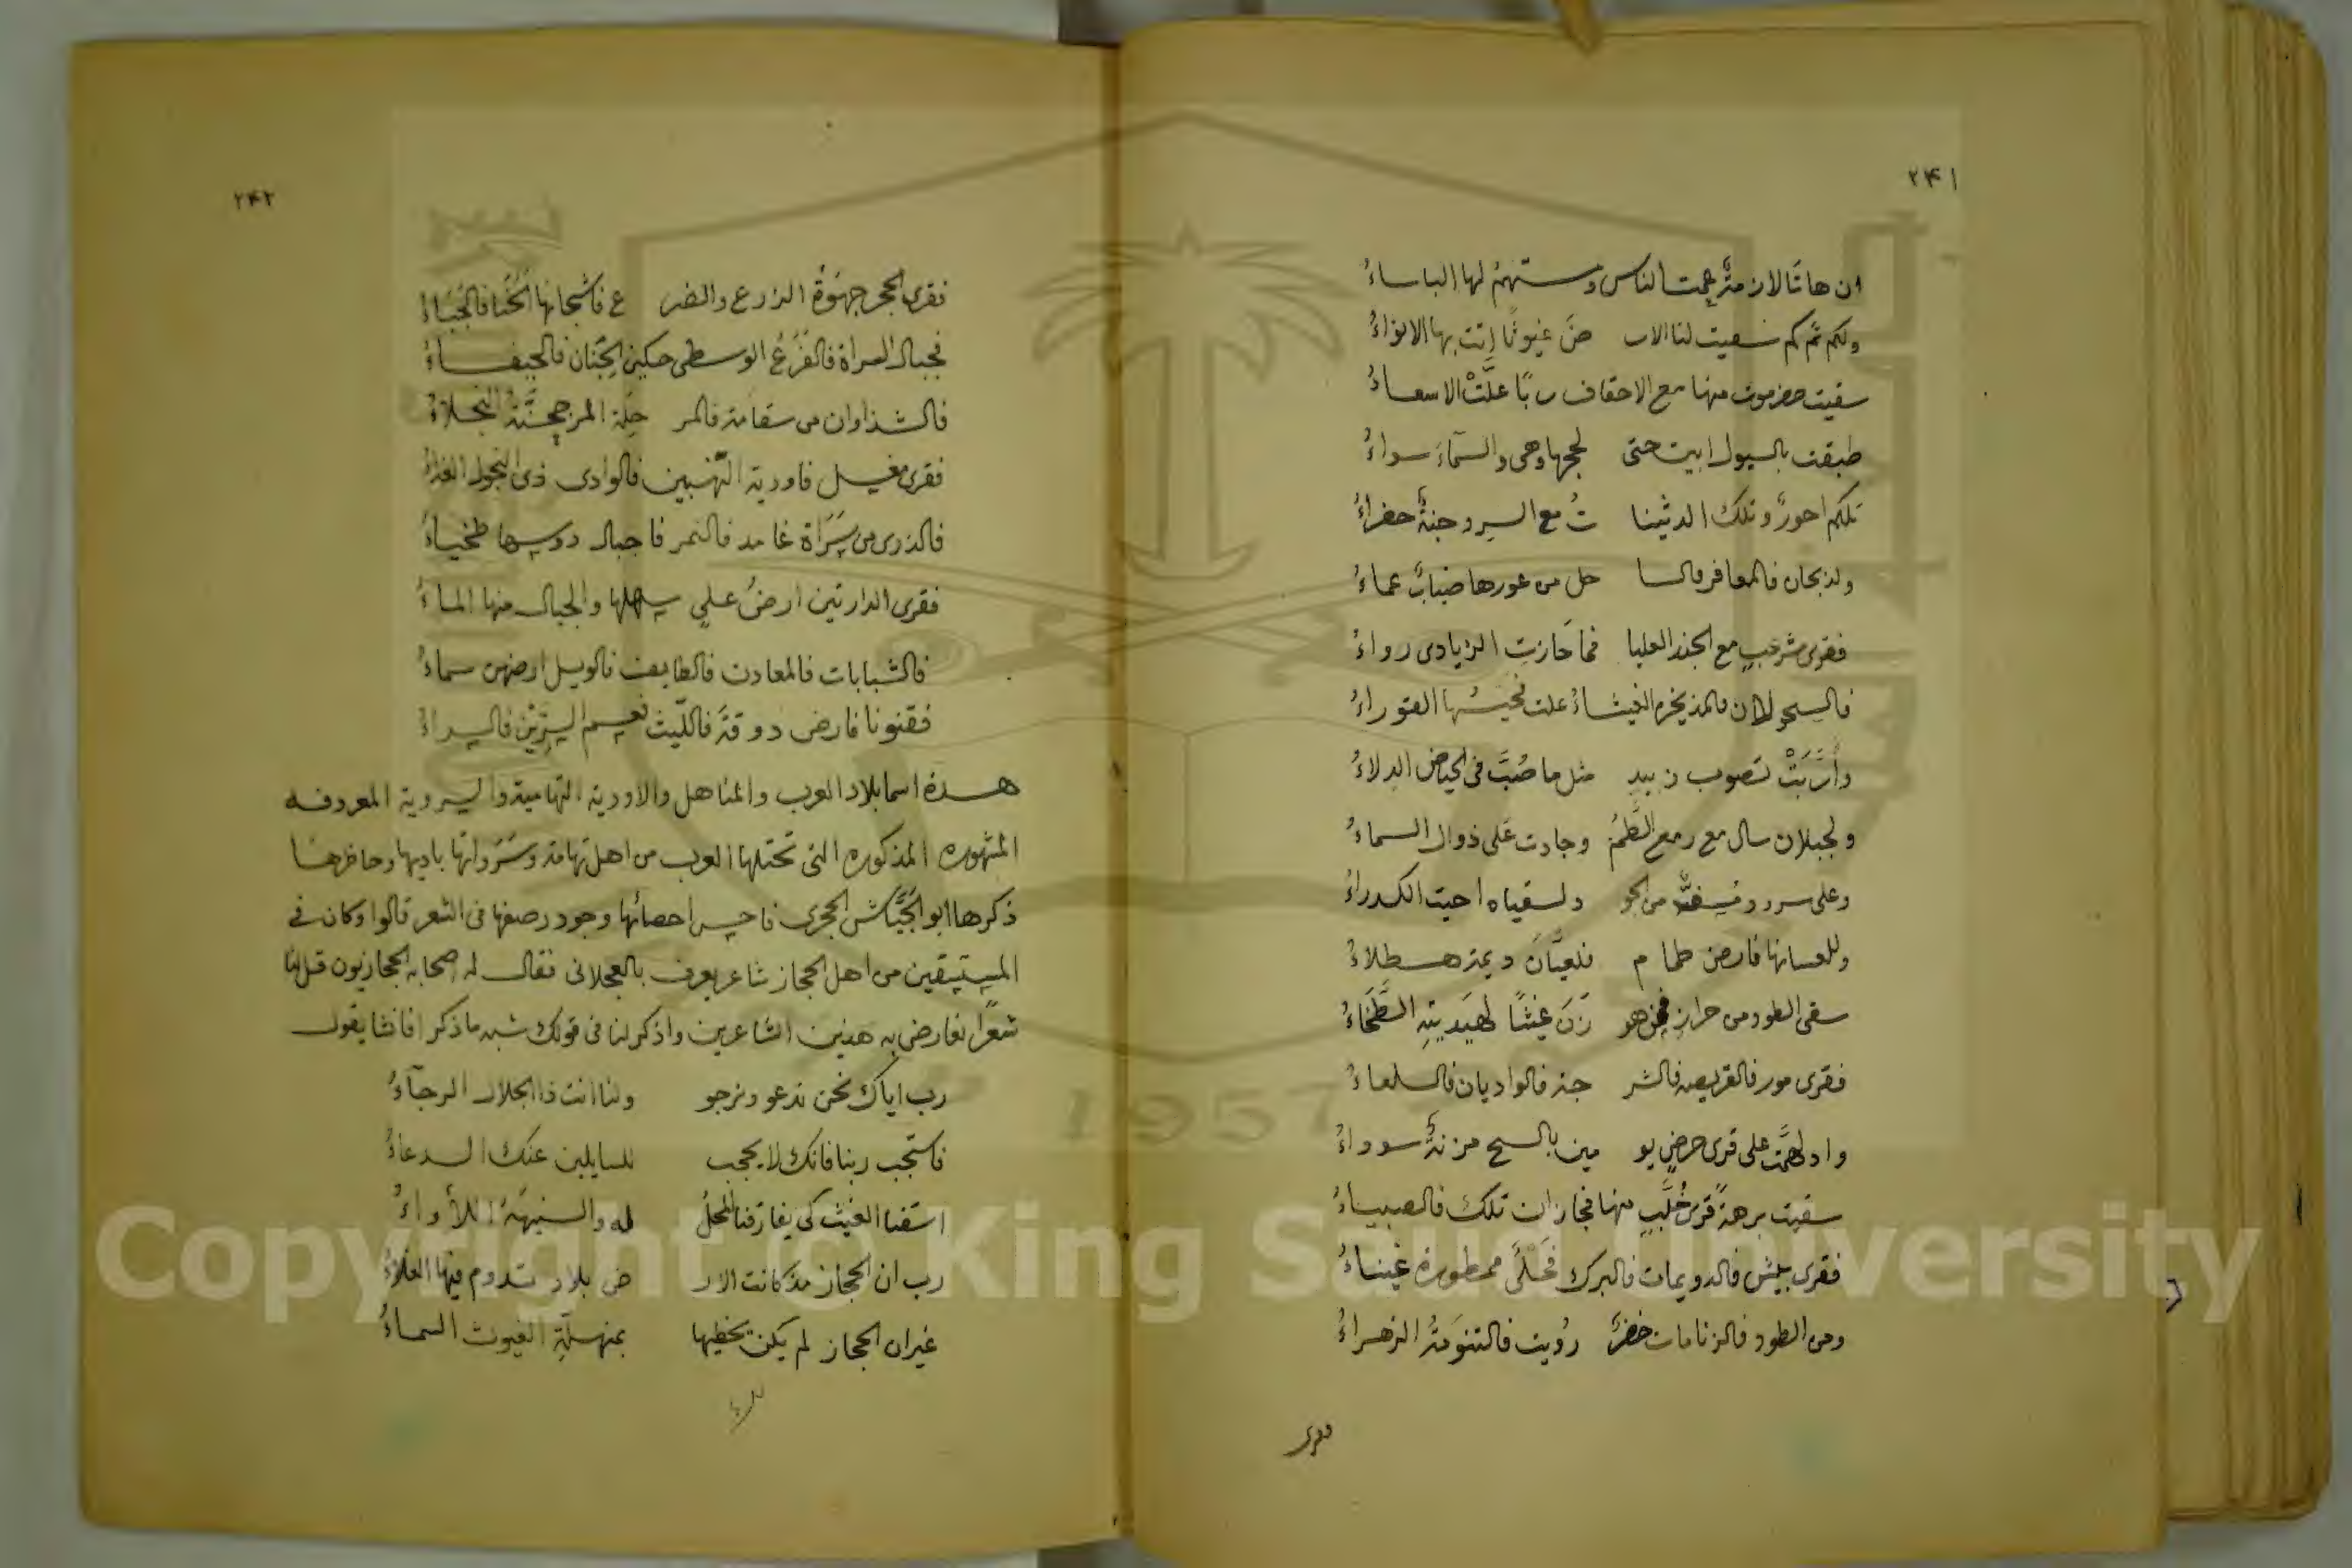 ٢٤١
ان هاتا الازمة عمت الناس ومستهم لها الباساءُ
ولكم ثم كم سقيت لنا الار ضَ غيوثًا اتت بها الانواءُ
سقيت حضرموت منها مع الاحقاف ربًا علَّتْ الاسعاءُ
طبقت بالسيول ابين حتى لحجها وهى والسماءَ سواءُ
تلكم احورٌ وتلك الدثينا تُ مع السرو جنةٌ خضراءُ
ولذبحان فالمعافر فالسا حل من غورها ضبابٌ عماءُ
فقرى شرعبٍ مع الجند العليا فما حَازت الزيادى رواءُ
فالسحولان فالمذيخرة الغيثاءُ علت القوراءُ
وأَرَّبَتْ تصوب زبيد مثل ما صُبَّ فى الحياض الدلاءُ
ولجبلان سال مع رمع الطَّمُّ وجادت على ذوال السماءُ
وعلى سردد من الجو ولسقياه احيت الكدراءُ
ولعسانها فارض طمام فلعيَّانَ ديمة هطلاءُ
سقى الطود من حرازٍ فمن هو زَنَ غيثًا لهيديتهِ الطَّخَاءُ
فقرى مور فالفريصه فالشر جة فالواديان فالسلعاءُ
وادلهمَّت على قرى حرضٍ يو مين بالسح مزنةٌ سوداءُ
سقيت برهةً قرى خُلَّبٍ منها فجازان تلك فالصبياءُ
فقرى بيش فالدويمات فالبرك فَحَلْىَ ممطورة غيناءُ
ومن الطود فالزنامات خضرٌ رُويت فالتنوَمةُ الزهراءُ
فقرى
٢٤٢
فقرى الحجر جهوَةُ الزرع والضر ع فاشجانها فالجَبَاءُ
فجبال السراة فالفَرْعُ الوسطى حكين الجِّنان فالجيفاءُ
فالشذاوان من سقامة فالمر حلَة المرجحنَّة النجلاءُ
فقرى مغسل فاودية النهبين فالوادى ذى النجول الغداءُ
فالذرى من سَرَاة غامد فالنمر فاجبال دوسها طخياءُ
فقرى الدارتين ارضُ على سهلها والجبال منها الماءُ
فالشبابات فالمعادن فالطايف فالويل ارضهن سماءُ
فقنونا فارض دوقة فاللّيث نعيم السرّين فالسراءُ
هذة اسما بلاد العرب والمناهل والاودية التهامية والسروية المعروفه
المشهوره المذكوره التى تحتلها العرب من اهل تهامة وسَرَواتها باديها وحاضرها
ذكرها ابو الجَيَّاش الحجرى فاحسن احصائها وجود رصفها فى الشعر قالوا وكان فى
المستسقين من اهل الحجاز شاعر يعرف بالعجلانى فقال له اصحابه الحجازيون قل لنا
شعرًا نعارض به هذين الشاعرين واذكر لنا فى قولك شبه ما ذكرا فانشا يقول
رب اياك نحن ندعو ونرجو ولنا انت ذا الجلال الرجآءُ
فاستجب ربنا فانك لا يحجب للسايلين عنك الدعاءُ
اسقنا الغيث كى يفارقنا المحلُ له والسنيهَةُ اللأواءُ
رب ان الحجاز مذ كانت الار ض بلاد تدوم فيها الغلاءُ
غير ان الحجاز لم يكن يخطيها بمنهلّةِ الغيوث السماءُ
1957
Copyright © King Saud University